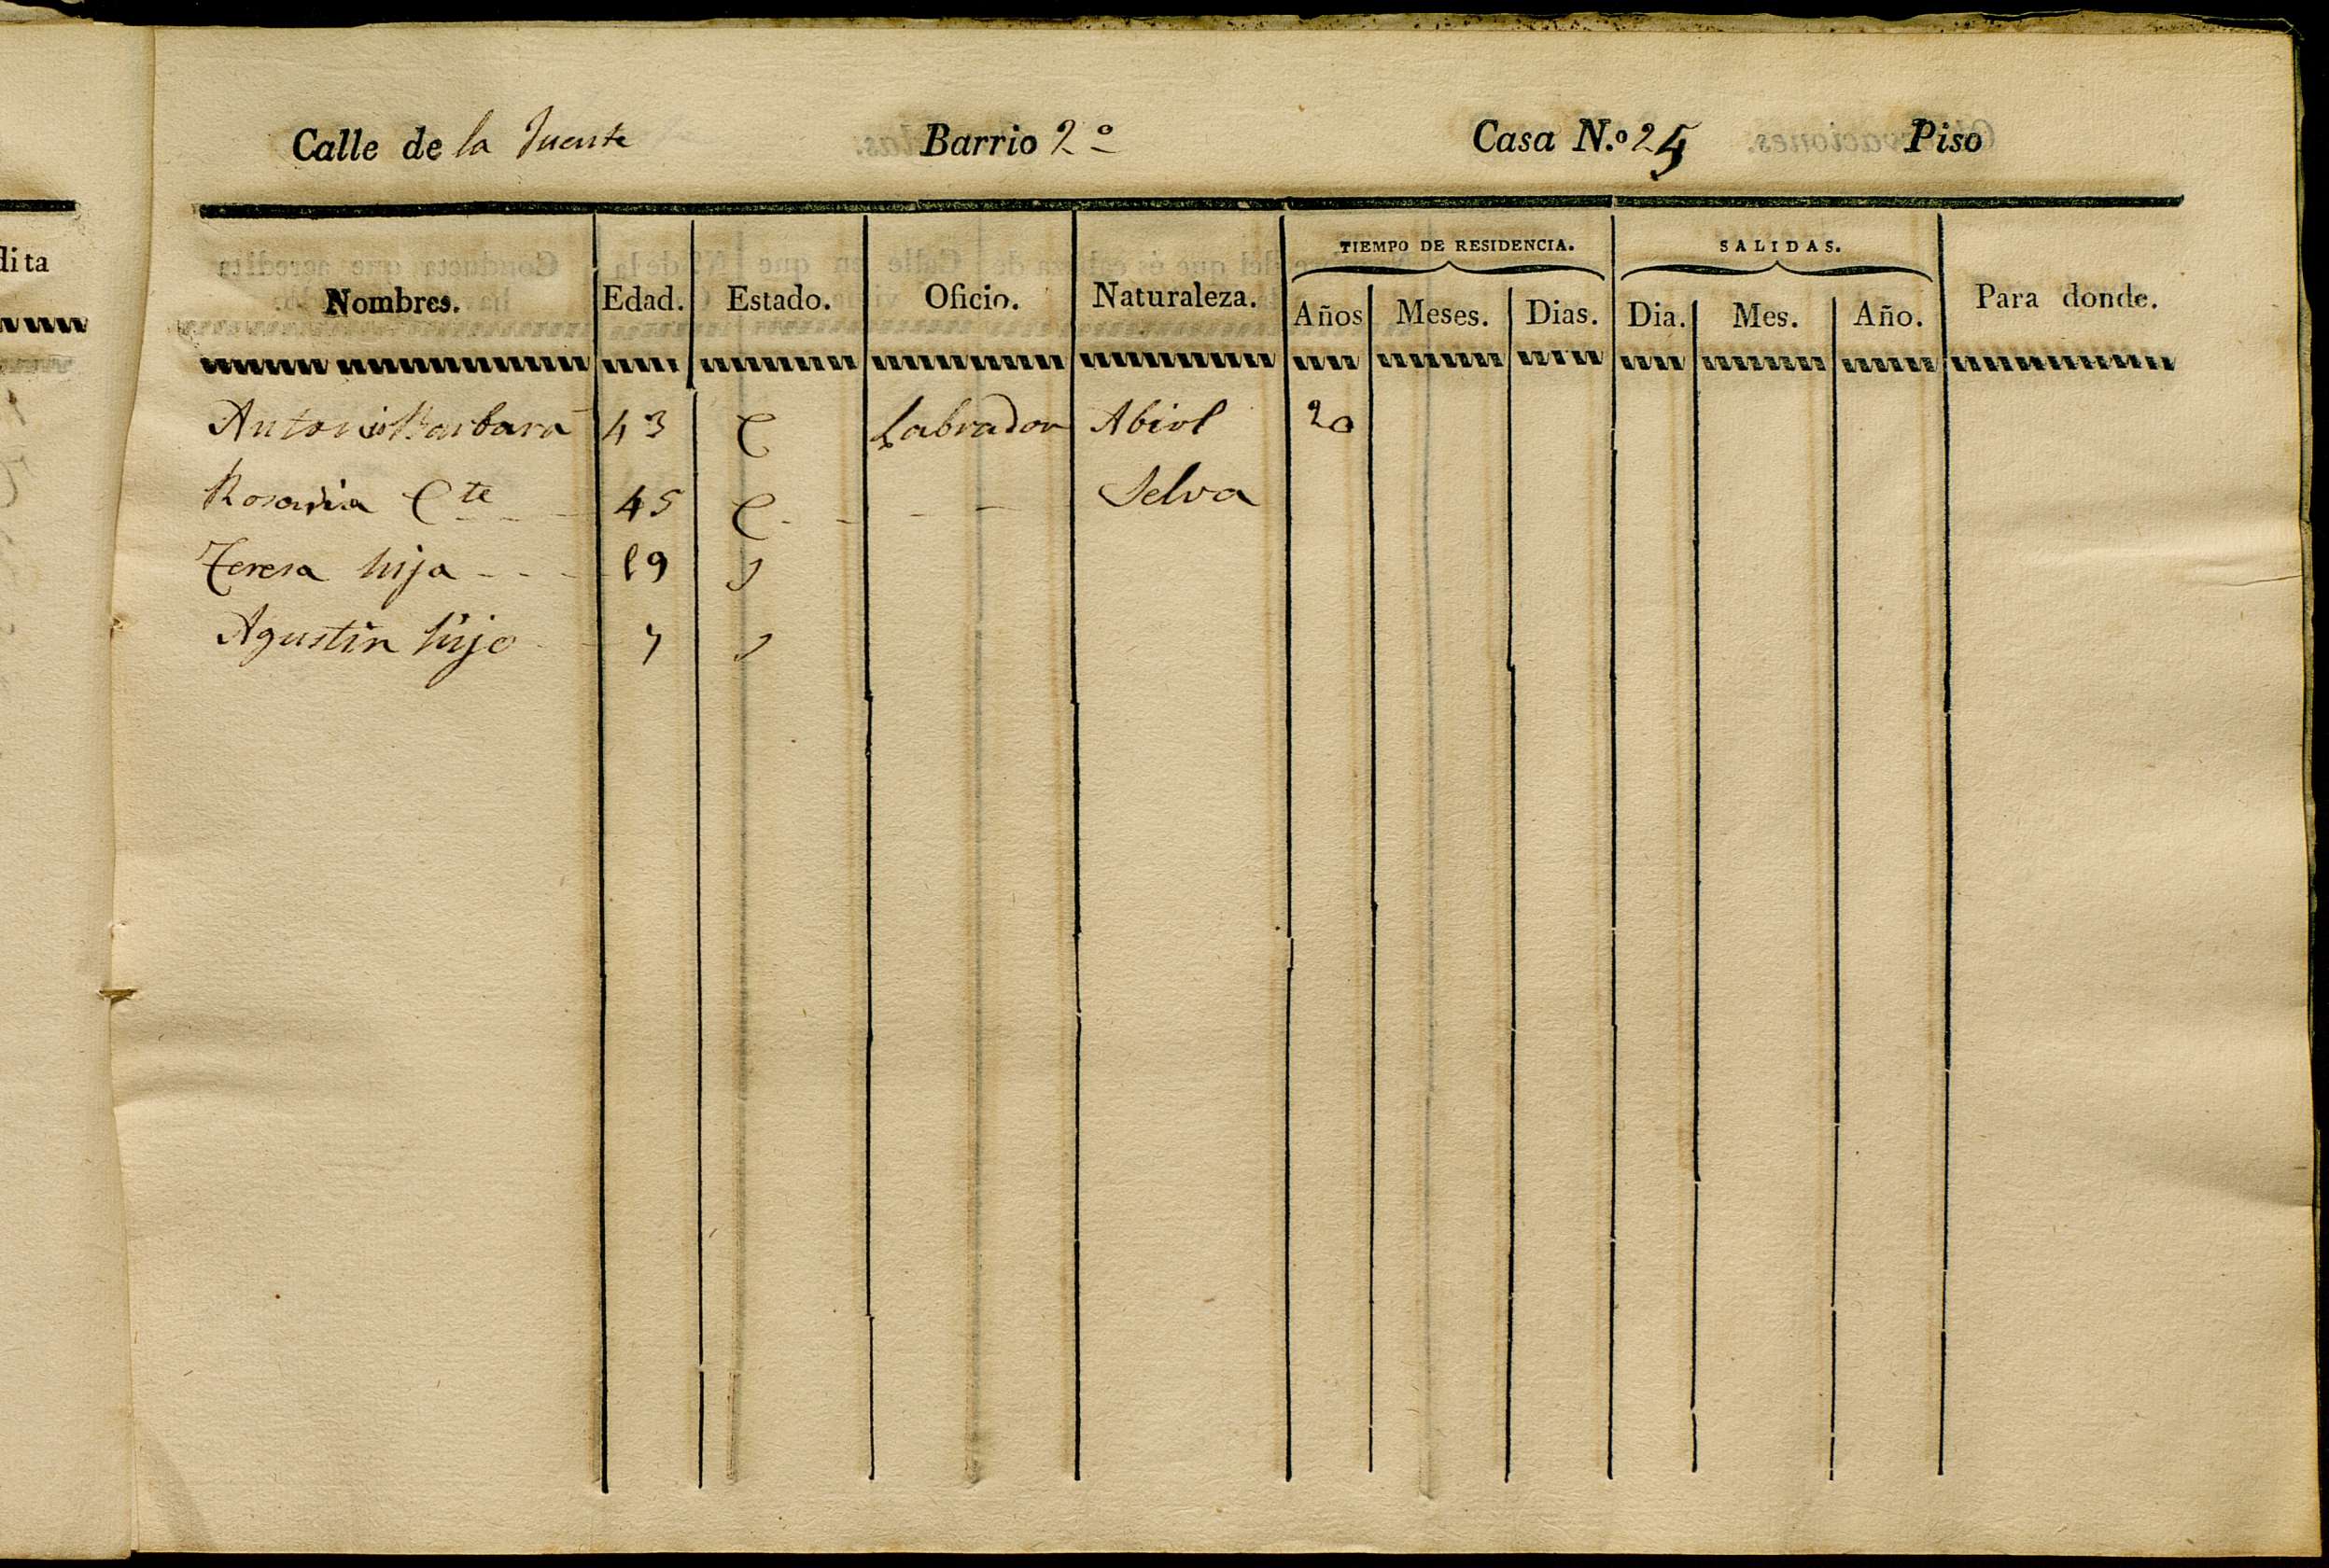 Calle de la fuente Barrio 2º Casa N.º 25 Piso
TIEMPO DE RESIDENCIA. SALIDAS.
Nombres. Edad. Estado. Oficio. Naturaleza. Años Meses. Dias. Dia. Mes. Año. Para donde.
Antonio Barbará 43 C Labrador Abiol 20
Rosa C.te 45 C - - - - Selva
Teresa hija - - - 19 S
Agustin hijo 7 S
dita